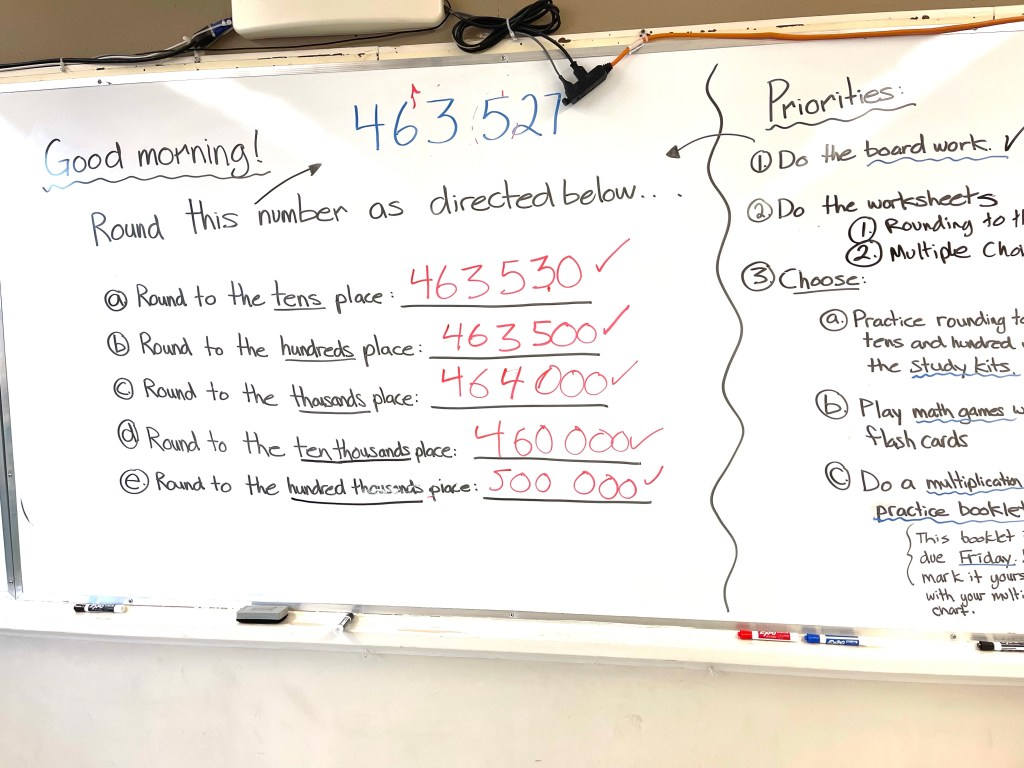 463 527
Good morning!
Round this number as directed below....
ⓐ Round to the tens place: 463 530 ✓
ⓑ Round to the hundreds place: 463 500 ✓
ⓒ Round to the thousands place: 464 000 ✓
ⓓ Round to the ten thousands place: 460 000 ✓
ⓔ Round to the hundred thousands place: 500 000 ✓
Priorities:
① Do the board work. ✓
② Do the worksheets
① Rounding to
② Multiple
③ Choose:
ⓐ Practice rounding
tens and hundred
the study kits.
ⓑ Play math games
flash cards
ⓒ Do a multiplication
practice booklet
This booklet
due Friday.
mark it
with your
chart.
EXPO
EXPO